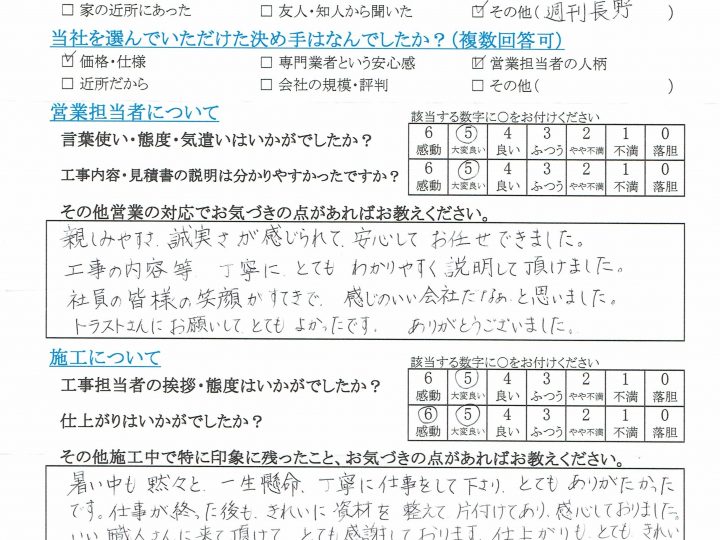 □ 家の近所にあった □ 友人・知人から聞いた ☑ その他(週刊長野 )
当社を選んでいただけた決め手はなんでしたか?(複数回答可)
☑ 価格・仕様 □ 専門業者という安心感 ☑ 営業担当者の人柄
□ 近所だから □ 会社の規模・評判 □ その他( )
営業担当者について 該当する数字に○をお付けください
言葉使い・態度・気遣いはいかがでしたか? 6 5 4 3 2 1 0
感動 大変良い 良い ふつう やや不満 不満 落胆
工事内容・見積書の説明は分かりやすかったですか? 6 5 4 3 2 1 0
感動 大変良い 良い ふつう やや不満 不満 落胆
その他営業の対応でお気づきの点があればお教えください。
親しみやすさ、誠実さが感じられて、安心してお任せできました。
工事の内容等、丁寧に、とてもわかりやすく説明して頂けました。
社員の皆様の笑顔がすてきで、感じのいい会社だなあと思いました。
トラストさんにお願いして、とてもよかったです。 ありがとうございました。
施工について 該当する数字に○をお付けください
工事担当者の挨拶・態度はいかがでしたか? 6 5 4 3 2 1 0
感動 大変良い 良い ふつう やや不満 不満 落胆
仕上がりはいかがでしたか? 6 5 4 3 2 1 0
感動 大変良い 良い ふつう やや不満 不満 落胆
その他施工中で特に印象に残ったこと、お気づきの点があればお教えください。
暑い中も黙々と、一生懸命、丁寧に仕事をして下さり、とてもありがたかった
です。仕事が終った後も、きれいに資材を整えて片付けてあり、感心しておりました。
いい職人さんに来て頂けて、とても感謝しております。仕上がりも、とてもきれい